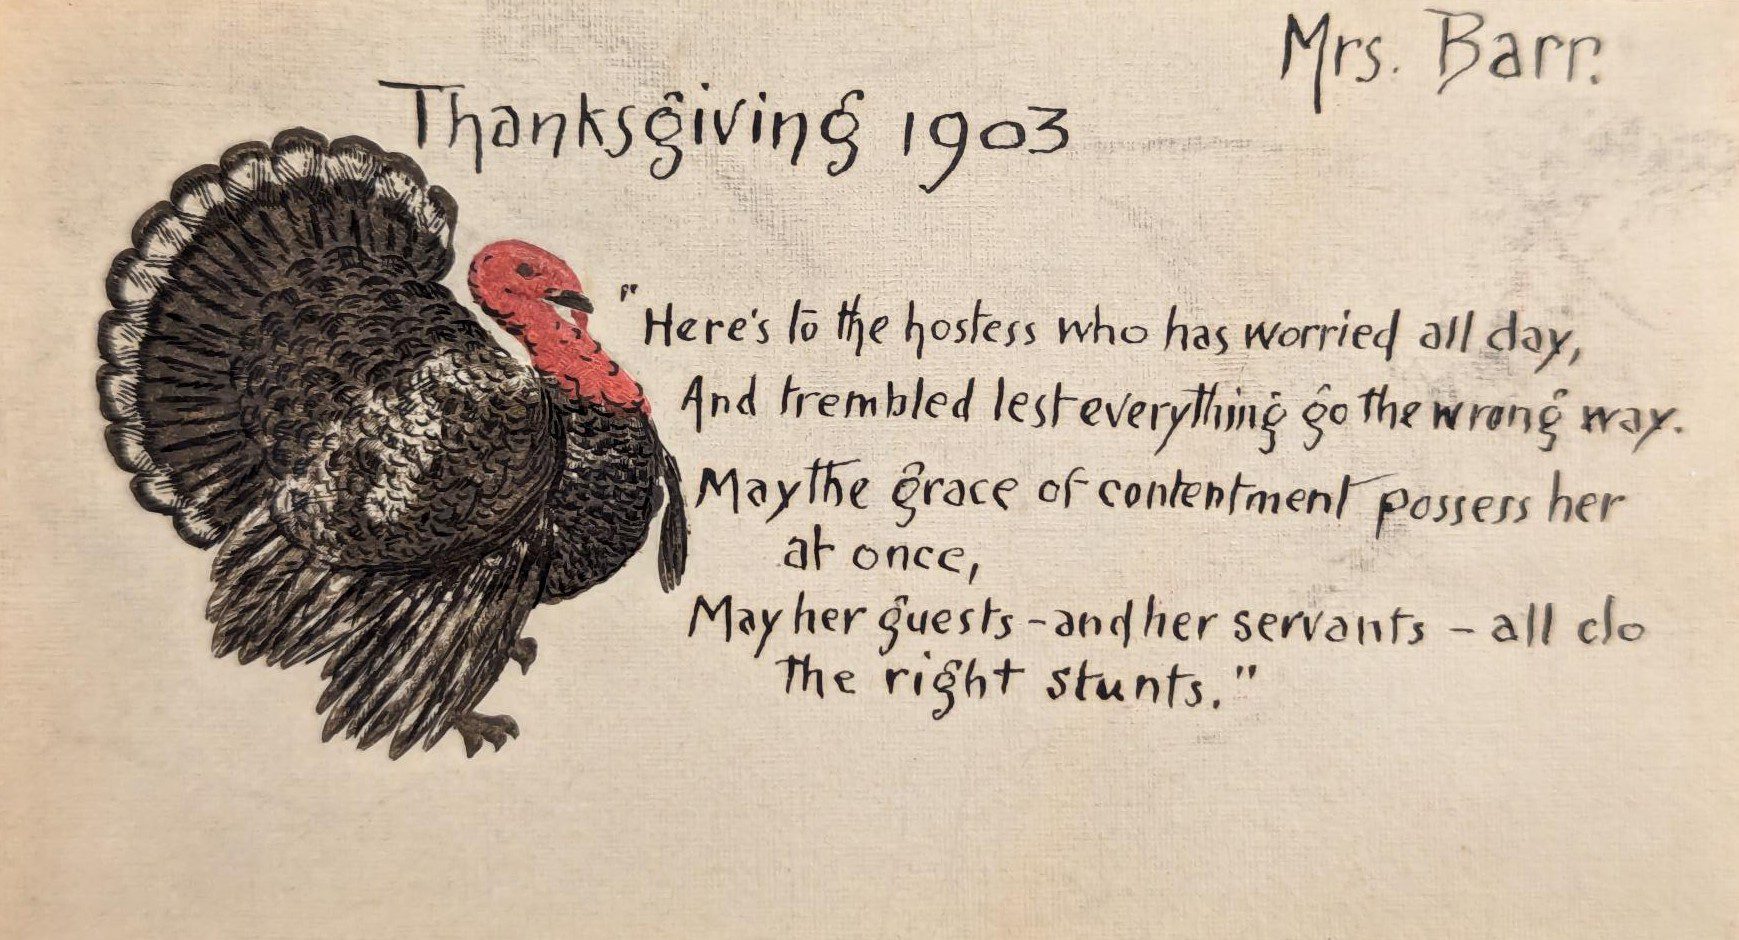 Mrs. Barr.
Thanksgiving 1903
"Here's to the hostess who has worried all day,
And trembled lest everything go the wrong way.
May the grace of contentment possess her
at once,
May her guests - and her servants - all do
the right stunts."